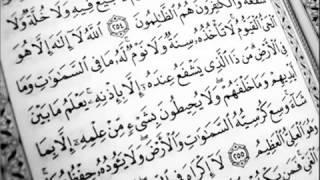 بَيْعٌ فِيهِ وَلَا خُلَّةٌ وَلَا
شَفَٰعَةٌ وَٱلْكَٰفِرُونَ هُمُ ٱلظَّٰلِمُونَ ٢٥٤ ٱللَّهُ لَآ إِلَٰهَ إِلَّا هُوَ
ٱلْحَىُّ ٱلْقَيُّومُ لَا تَأْخُذُهُۥ سِنَةٌ وَلَا نَوْمٌ لَّهُۥ مَا فِى ٱلسَّمَٰوَٰتِ وَمَا
فِى ٱلْأَرْضِ مَن ذَا ٱلَّذِى يَشْفَعُ عِندَهُۥٓ إِلَّا بِإِذْنِهِۦ يَعْلَمُ مَا بَيْنَ
أَيْدِيهِمْ وَمَا خَلْفَهُمْ وَلَا يُحِيطُونَ بِشَىْءٍ مِّنْ عِلْمِهِۦٓ إِلَّا بِمَا
شَآءَ وَسِعَ كُرْسِيُّهُ ٱلسَّمَٰوَٰتِ وَٱلْأَرْضَ وَلَا يَـُٔودُهُۥ حِفْظُهُمَا
وَهُوَ ٱلْعَلِىُّ ٱلْعَظِيمُ ٢٥٥ لَآ إِكْرَاهَ فِى
ٱلْغَىِّ فَمَن يَكْفُرْ